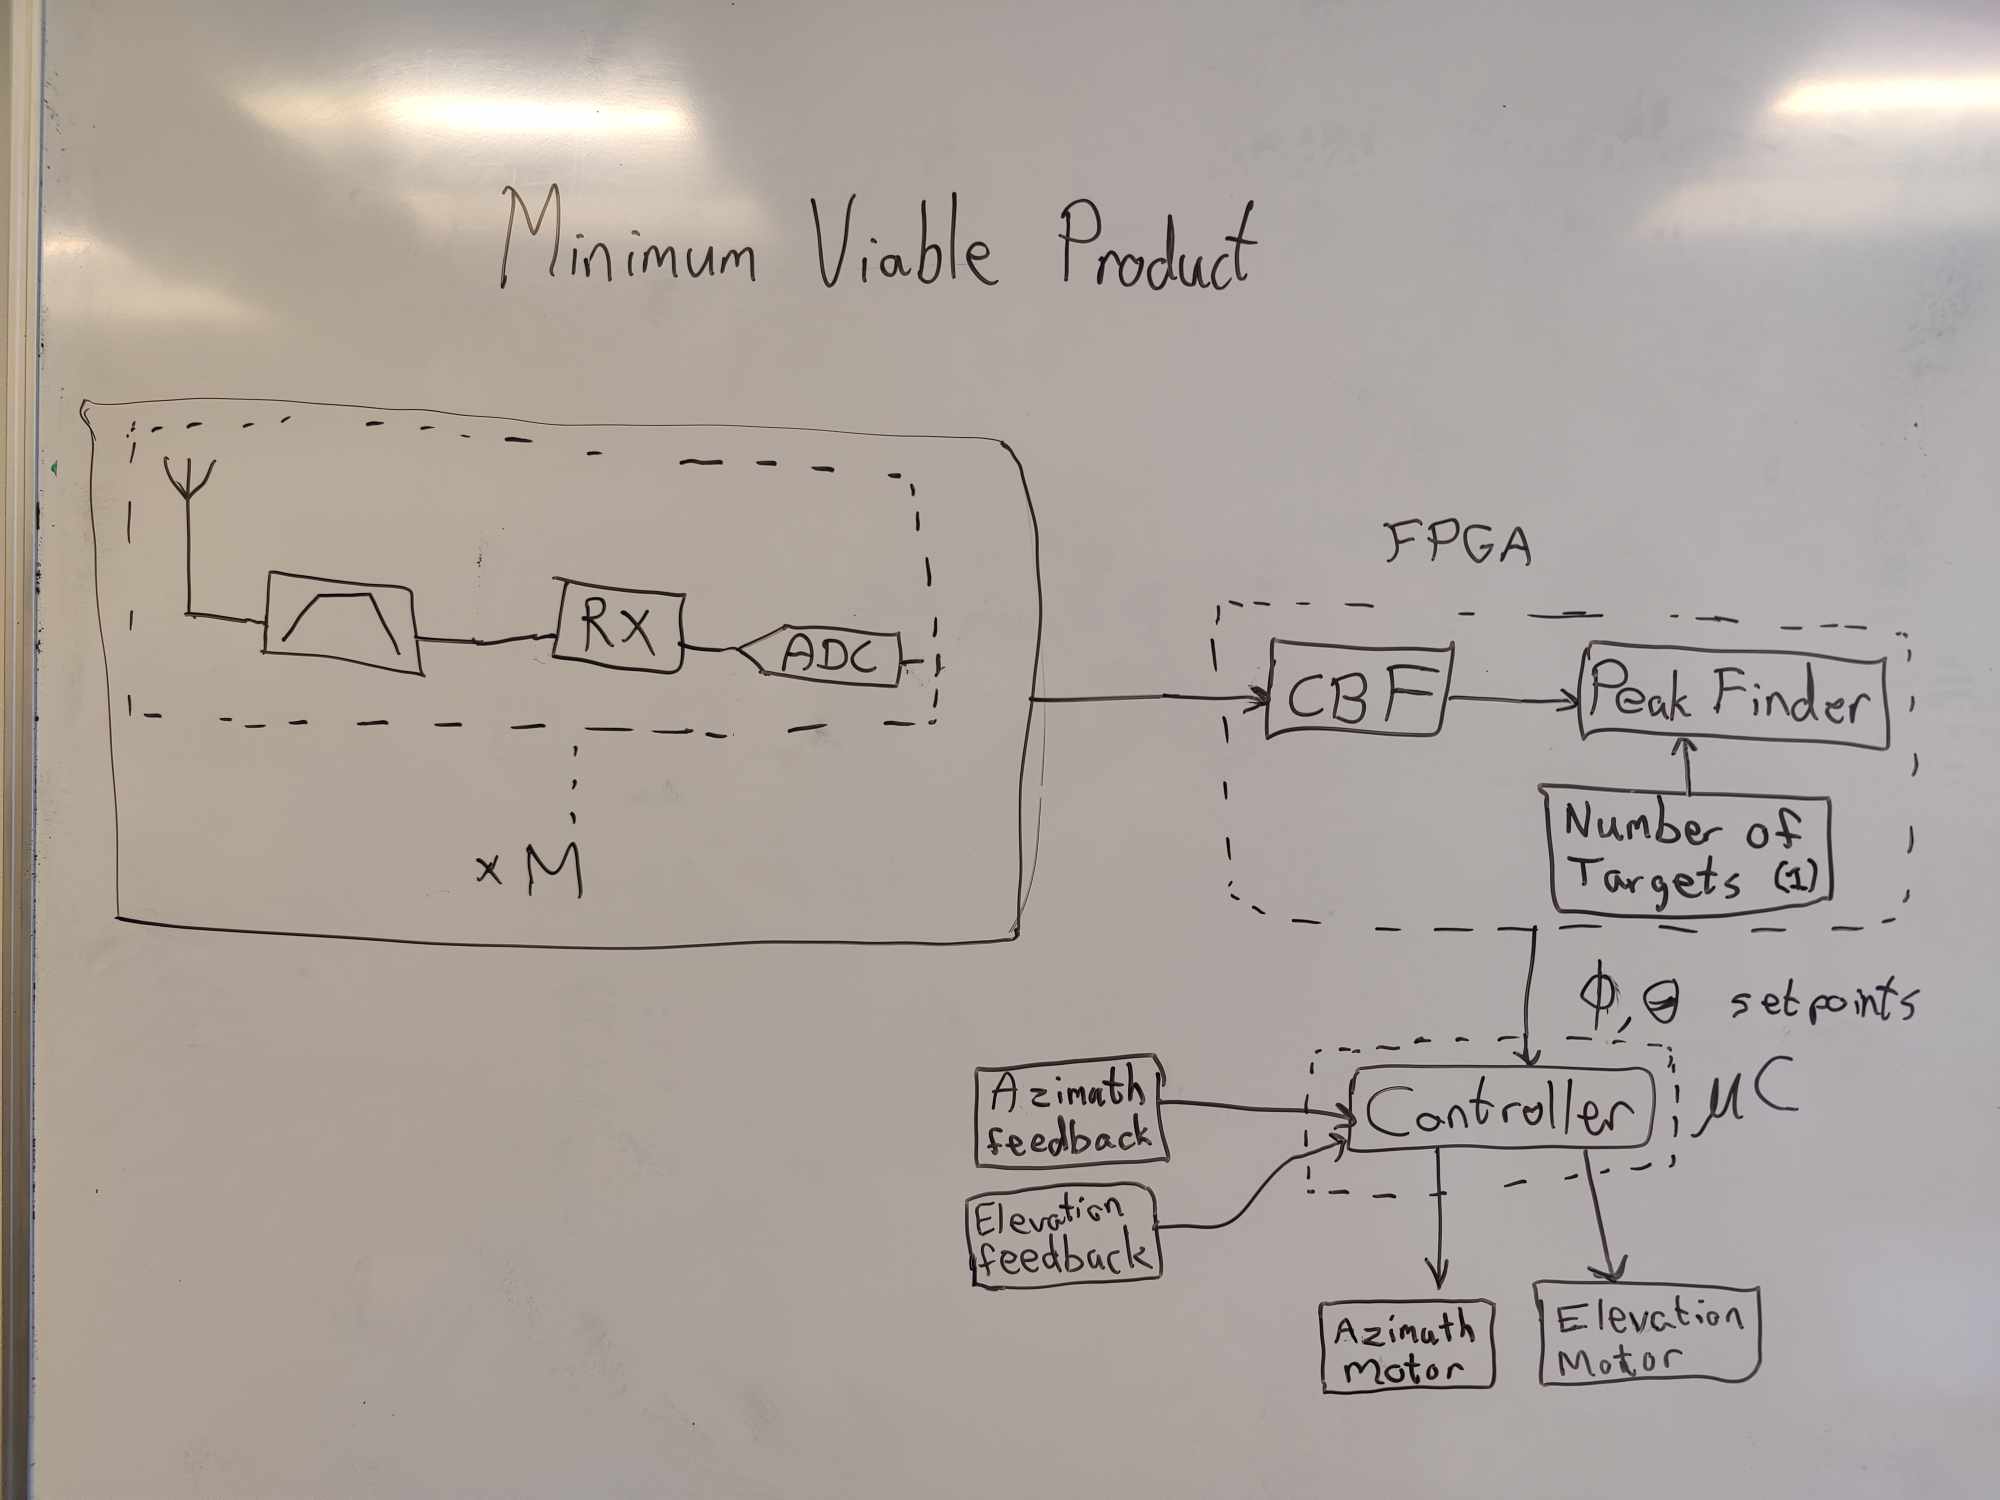 Minimum Viable Product
RX
ADC
x M
FPGA
CBF
Peak Finder
Number of
Targets (1)
ϕ, θ setpoints
Controller
μC
Azimuth
feedback
Elevation
feedback
Azimuth
Motor
Elevation
Motor